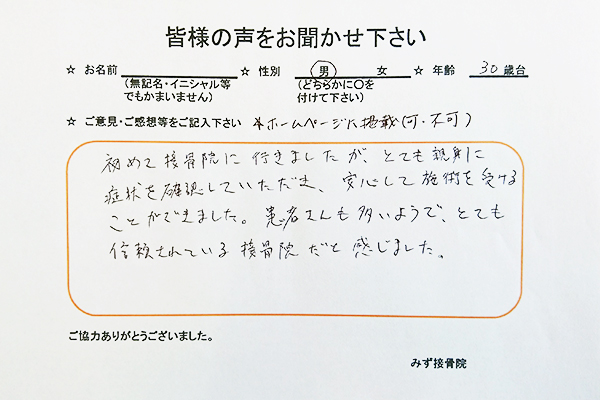 皆様の声をお聞かせ下さい
☆ お名前 ☆ 性別 男 女 ☆ 年齢 30 歳台
(無記名・イニシャル等 (どちらかに○を
でもかまいません) 付けて下さい)
☆ ご意見・ご感想等をご記入下さい *ホームページに掲載(可・不可)
初めて接骨院に行きましたが、とても親身に
症状を確認していただき、安心して施術を受ける
ことができました。患者さんも多いようで、とても
信頼されている接骨院だと感じました。
ご協力ありがとうございました。
みず接骨院